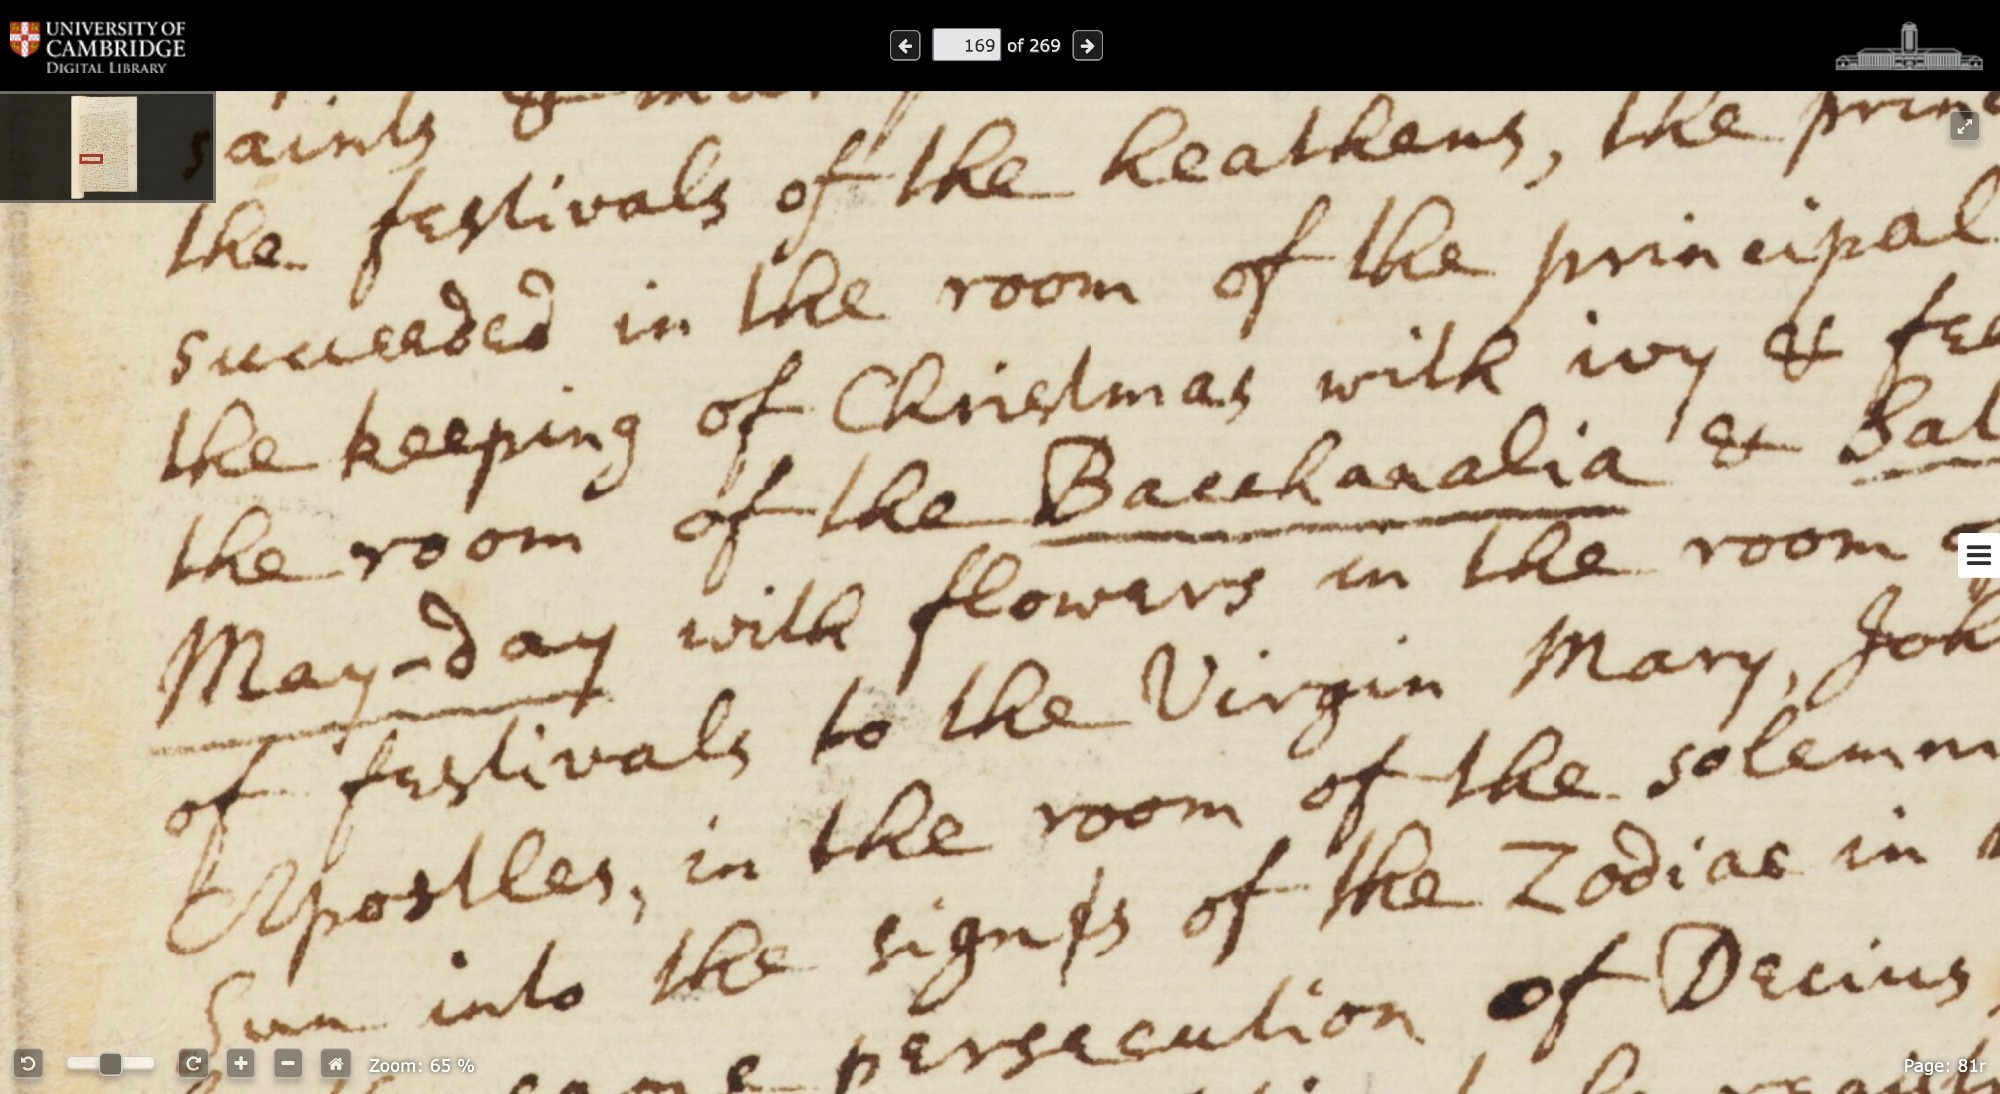 UNIVERSITY OF
CAMBRIDGE
DIGITAL LIBRARY
169 of 269
saints &
the festivals of the heathens, the prin
succeeded in the room of the principal
the keeping of Christmas with ivy & fea
the room of the Bacchanalia & Sat
May-day with flowers in the room o
of festivals to the Virgin Mary, Joh
Apostles, in the room of the solemn
Sun into the signs of the Zodiac in
persecution of Decius
Zoom: 65 %
Page: 81r